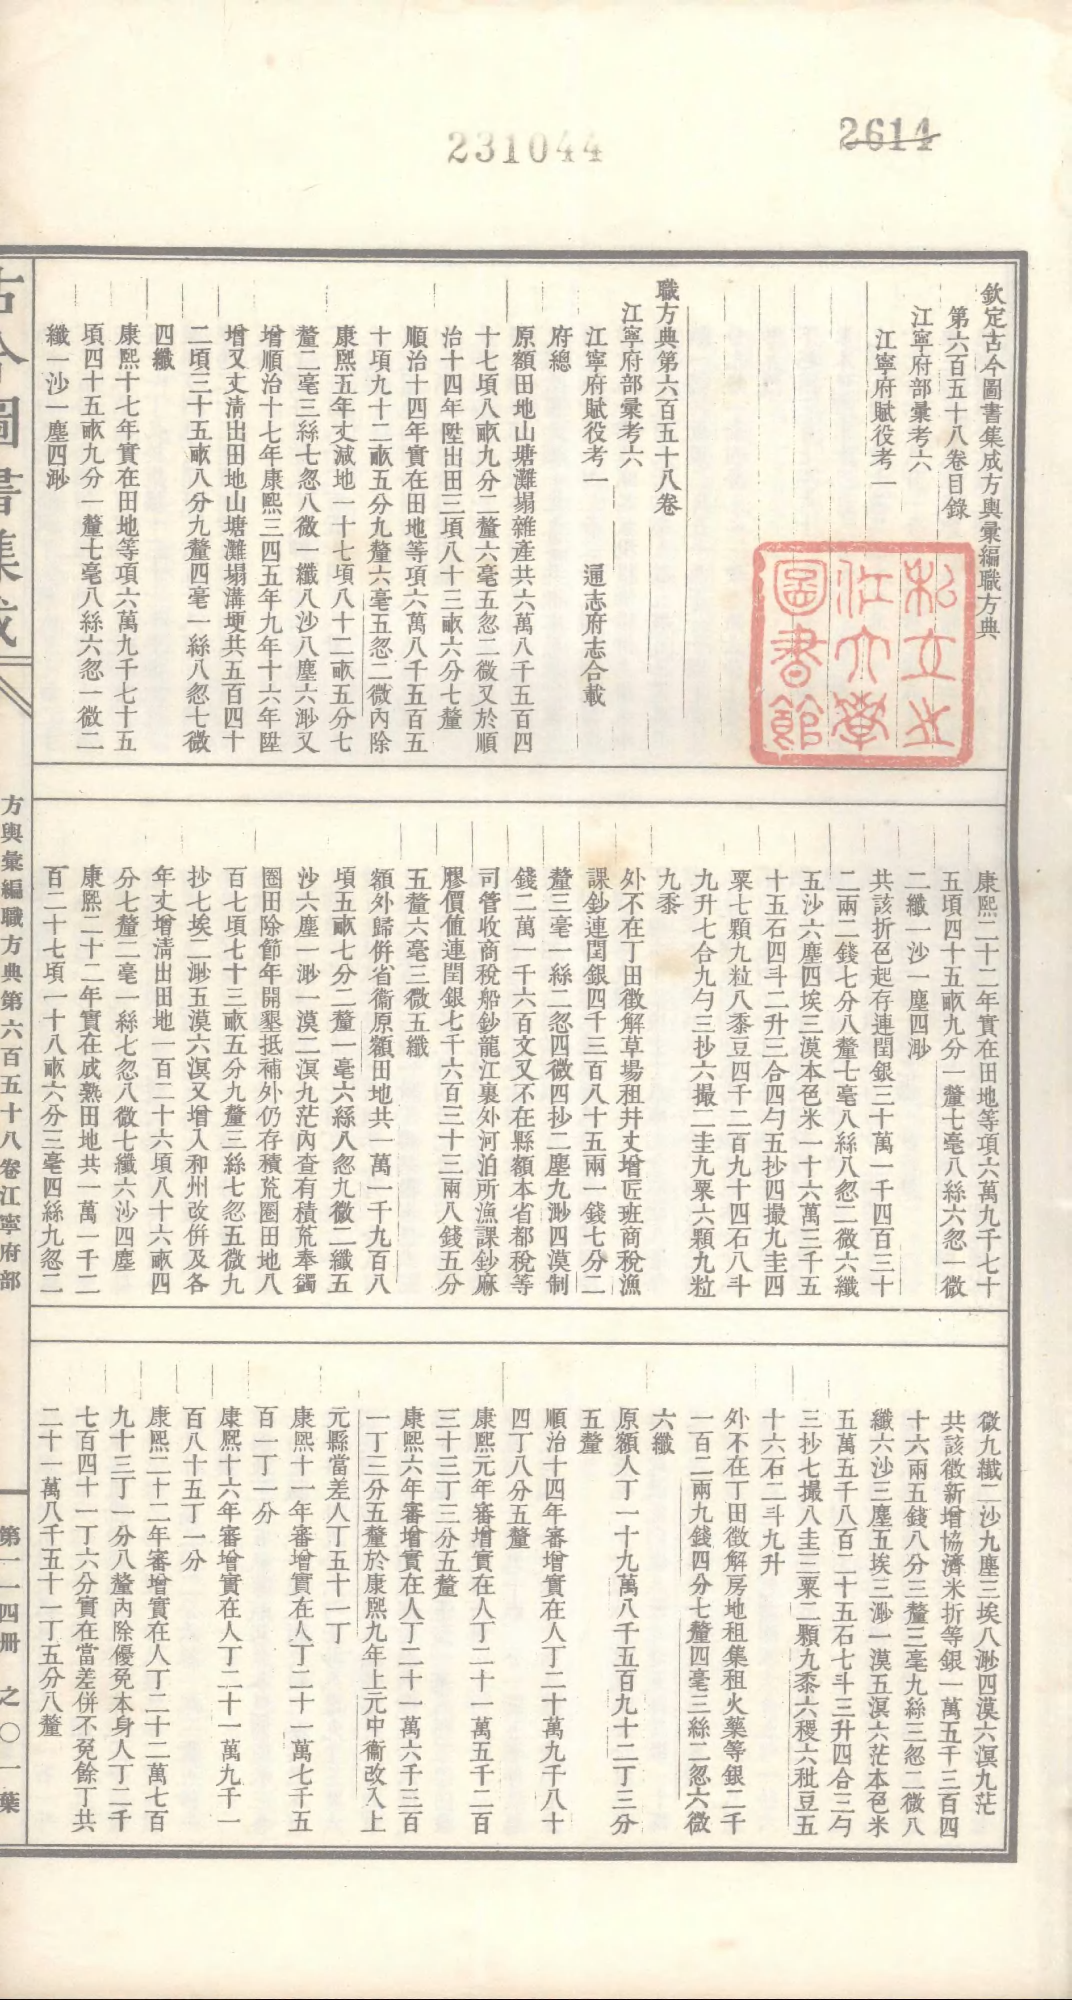 231044
2614
欽定古今圖書集成方輿彙編職方典
第六百五十八卷目錄
江寧府部彙考六
江寧府賦役考一
私立之江大學圖書館
職方典第六百五十八卷
江寧府部彙考六
江寧府賦役考一 通志府志合載
府總
原額田地山塘灘塌雜產共六萬八千五百四
十七頃八畝九分二釐六毫五忽二微又於順
治十四年陞出田三頃八十三畝六分七釐
順治十四年實在田地等項六萬八千五百五
十頃九十二畝五分九釐六毫五忽二微內除
康熙五年丈減地一十七頃八十二畝五分七
釐二毫三絲七忽八微一纖八沙八塵六渺又
增順治十七年康熙三四五年九年十六年陞
增又丈清出田地山塘灘塌溝埂共五百四十
二頃三十五畝八分九釐四毫一絲八忽七微
四纖
康熙十七年實在田地等項六萬九千七十五
頃四十五畝九分一釐七毫八絲六忽一微二
纖一沙一塵四渺
康熙二十二年實在田地等項六萬九千七十
五頃四十五畝九分一釐七毫八絲六忽一微
二纖一沙一塵四渺
共該折色起存連閏銀三十萬一千四百三十
二兩二錢七分八釐七毫八絲八忽二微六纖
五沙六塵四埃三漠本色米一十六萬三千五
十五石四斗二升三合四勺五抄四撮九圭四
粟七顆九粒八黍豆四千二百九十四石八斗
九升七合九勺三抄六撮二圭九粟六顆九粒
九黍
外不在丁田徵解草場租井丈增匠班商稅漁
課鈔連閏銀四千三百八十五兩一錢七分二
釐三毫一絲二忽四微四抄二塵九渺四漠制
錢二萬一千六百文又不在縣額本省都稅等
司管收商稅船鈔龍江裏外河泊所漁課鈔麻
膠價值連閏銀七千六百三十三兩八錢五分
五釐六毫三微五纖
額外歸併省衞原額田地共一萬一千九百八
頃五畝七分二釐一毫六絲八忽九微二纖五
沙六塵一渺一漠二溟九茫內查有積荒奉蠲
圈田除節年開墾抵補外仍存積荒圈田地八
百七頃七十三畝五分九釐三絲七忽五微九
抄七埃二渺五漠六溟又增入和州改併及各
年丈增清出田地一百二十六頃八十六畝四
分七釐二毫一絲七忽八微七纖六沙四塵
康熙二十二年實在成熟田地共一萬一千二
百二十七頃一十八畝六分三毫四絲九忽二
微九纖二沙九塵三埃八渺四漠六溟九茫
共該徵新增協濟米折等銀一萬五千三百四
十六兩五錢八分三釐三毫九絲三忽二微八
纖六沙三塵五埃三渺一漠五溟六茫本色米
五萬五千八百二十五石七斗三升四合三勺
三抄七撮八圭三粟二顆九黍六稷六秕豆五
十六石二斗九升
外不在丁田徵解房地租集租火藥等銀二千
一百二兩九錢四分七釐四毫三絲二忽六微
六纖
原額人丁一十九萬八千五百九十二丁三分
五釐
順治十四年審增實在人丁二十萬九千八十
四丁八分五釐
康熙元年審增實在人丁二十一萬五千二百
三十三丁三分五釐
康熙六年審增實在人丁二十一萬六千三百
一丁三分五釐於康熙九年上元中衞改入上
元縣當差人丁五十一丁
康熙十一年審增實在人丁二十一萬七千五
百一丁一分
康熙十六年審增實在人丁二十一萬九千一
百八十五丁一分
康熙二十二年審增實在人丁二十二萬七百
九十三丁一分八釐內除優免本身人丁二千
七百四十一丁六分實在當差併不免餘丁共
二十一萬八千五十一丁五分八釐
古今圖書集成
方輿彙編職方典第六百五十八卷江寧府部
第一一四冊之〇一葉